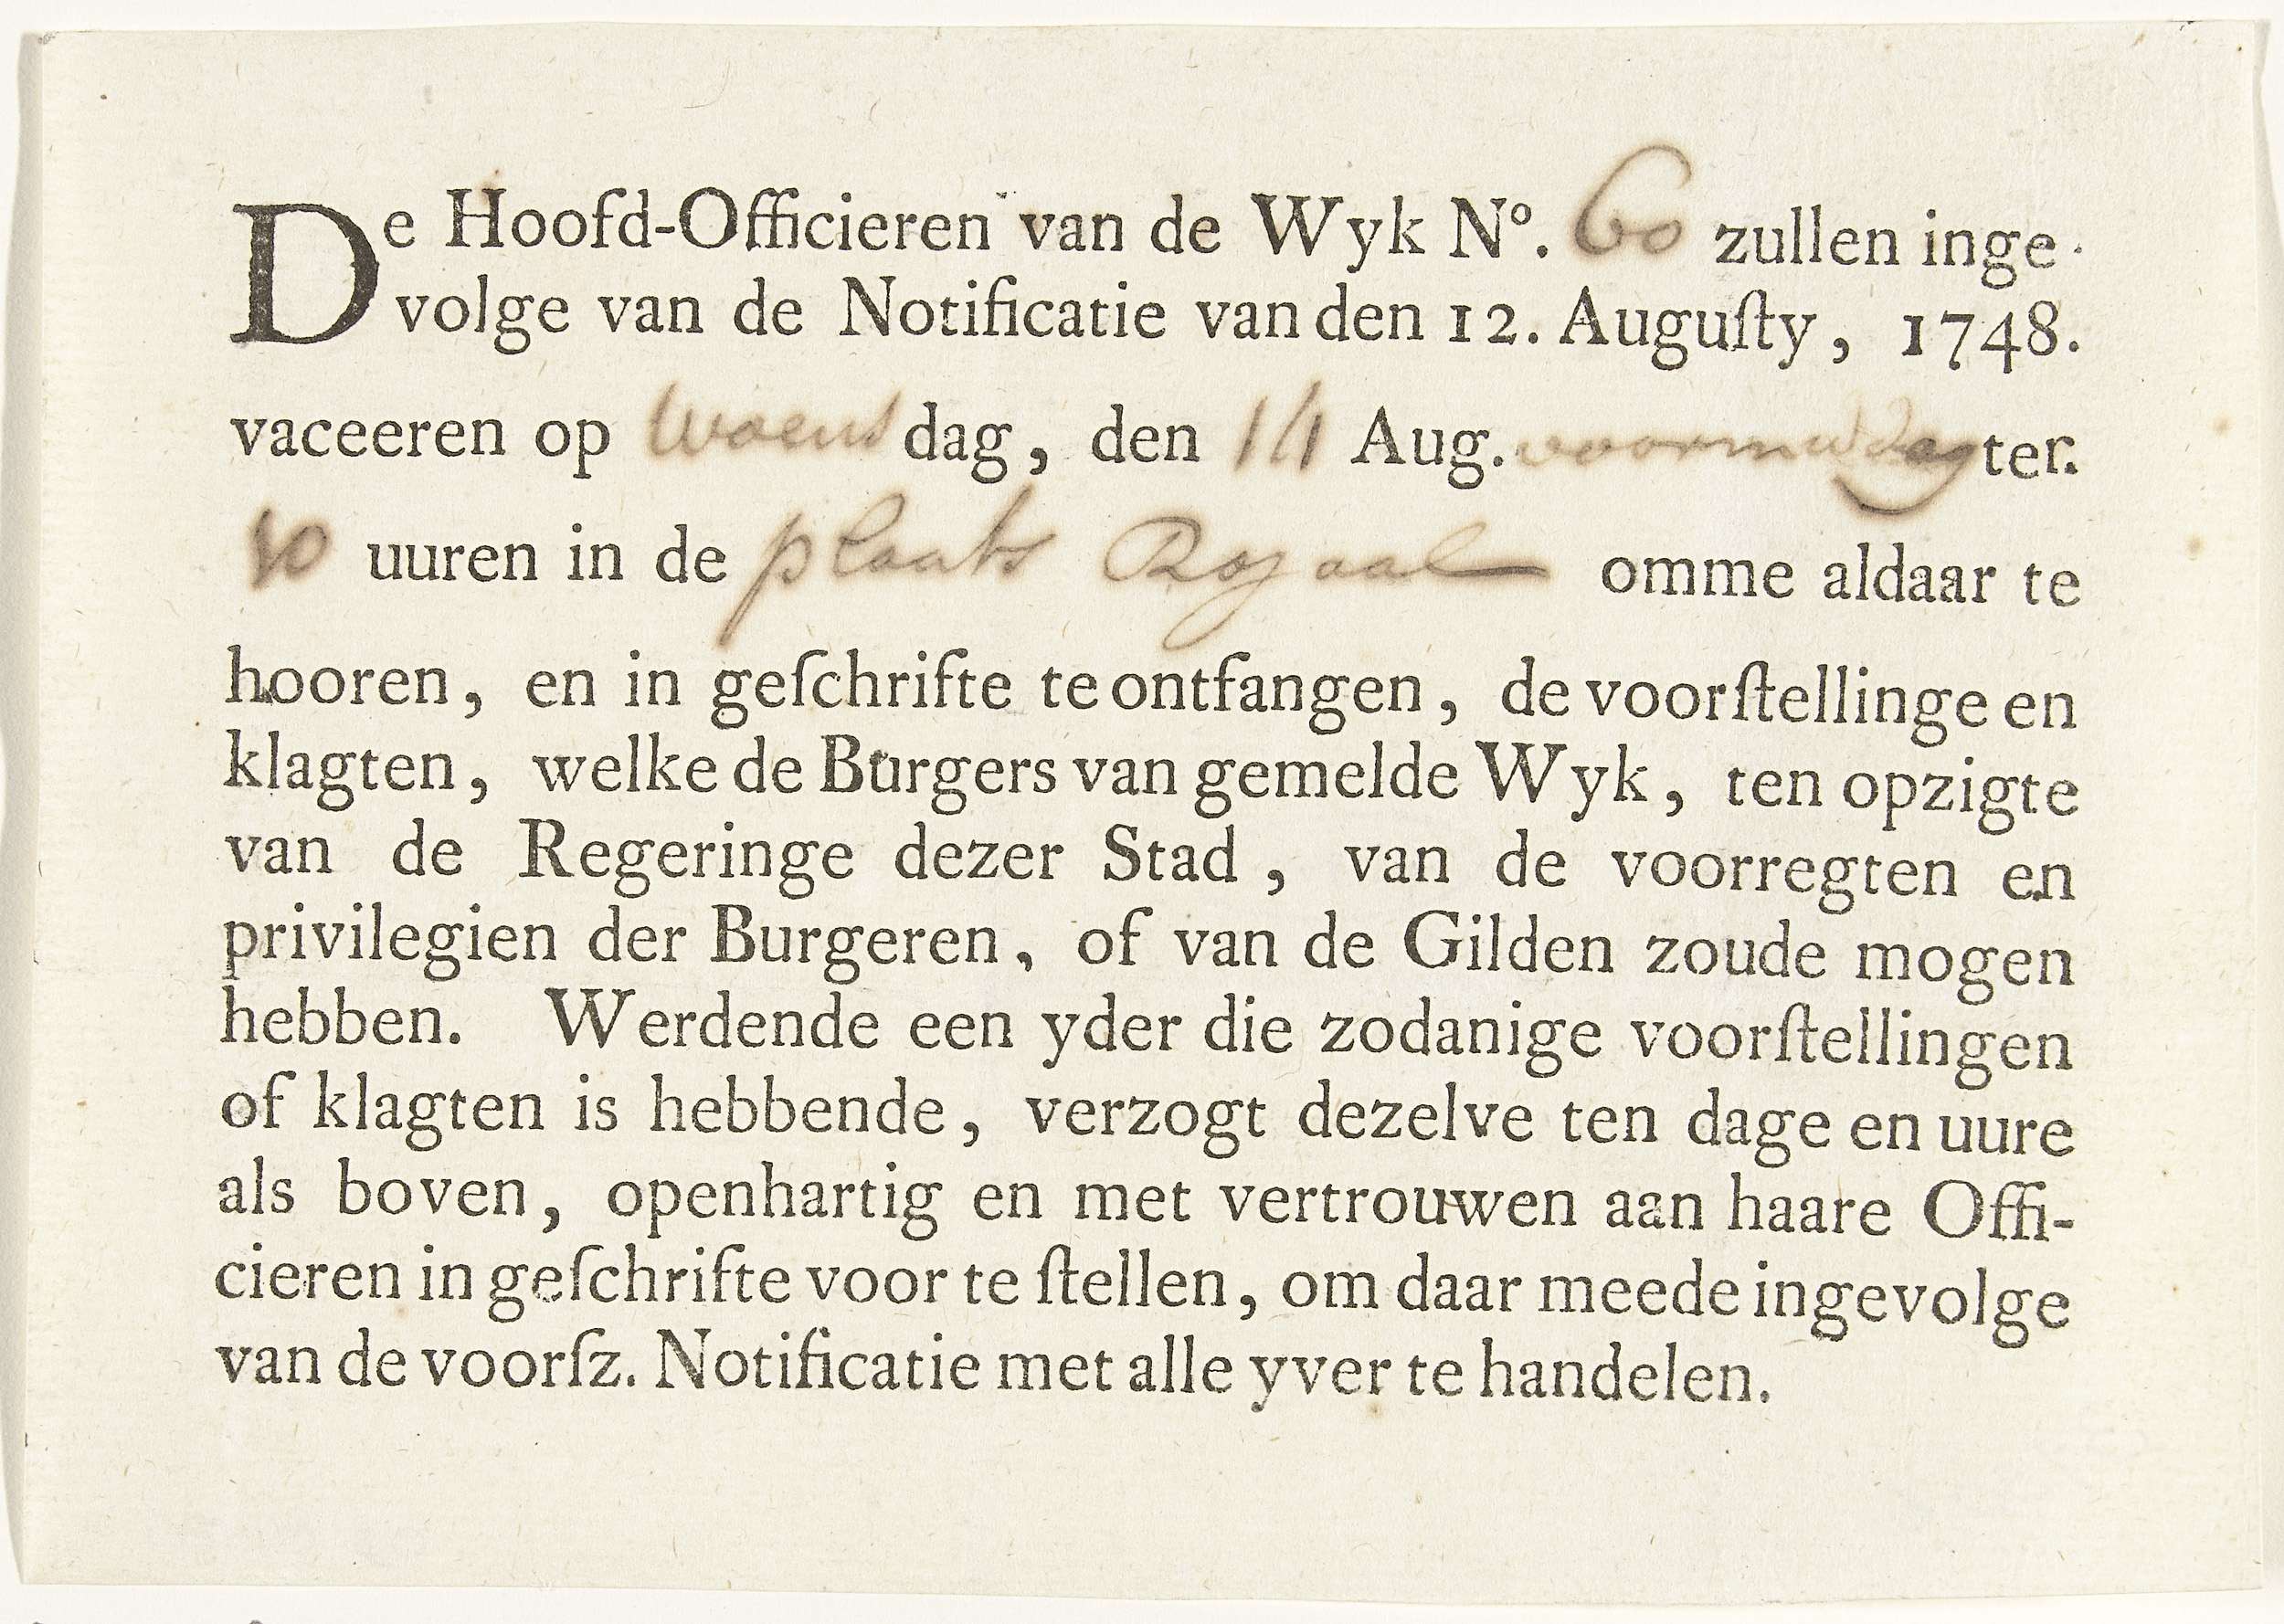 De Hoofd-Officieren van de Wyk Nº. 60 zullen inge-
volge van de Notificatie van den 12. Auguſty, 1748.
vaceeren op woensdag, den 14 Aug. voormiddag ter.
10 uuren in de plaats Royaal omme aldaar te
hooren, en in geſchrifte te ontfangen, de voorſtellinge en
klagten, welke de Burgers van gemelde Wyk, ten opzigte
van de Regeringe dezer Stad, van de voorregten en
privilegien der Burgeren, of van de Gilden zoude mogen
hebben. Werdende een yder die zodanige voorſtellingen
of klagten is hebbende, verzogt dezelve ten dage en uure
als boven, openhartig en met vertrouwen aan haare Offi-
cieren in geſchrifte voor te ſtellen, om daar meede ingevolge
van de voorſz. Notificatie met alle yver te handelen.